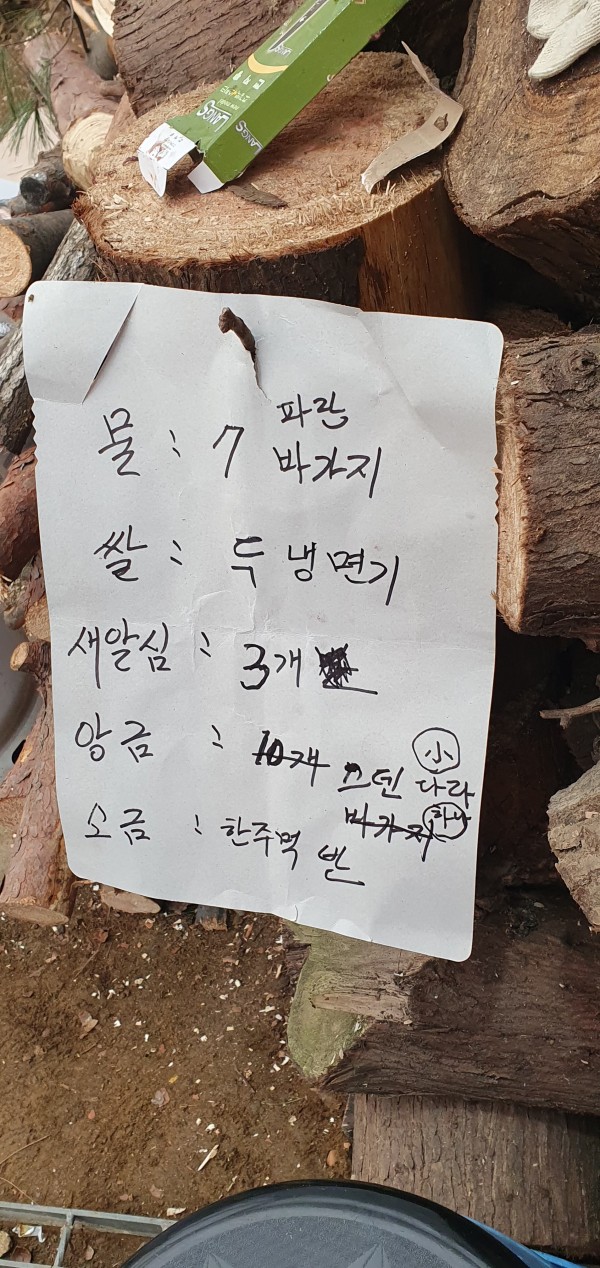 LANGS
LANGS
물 : 7 파란
바가지
쌀 : 두 냉면기
새알심 : 3개
앙금 : 10개 스덴 小 다라
바가지 하나
소금 : 한주먹 반